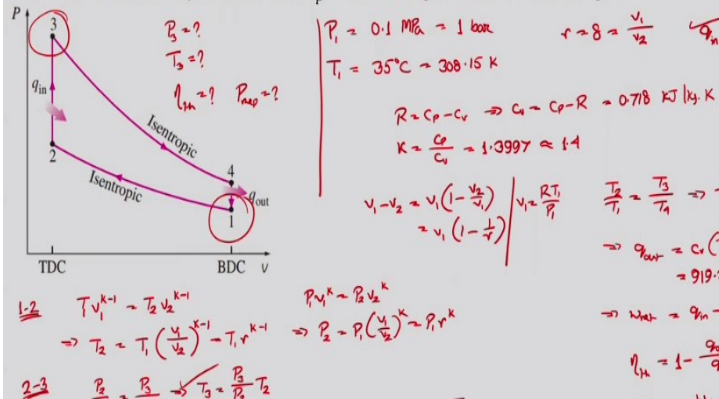 P
3
P₃ = ?
T₃ = ?
η_th = ? P_mep = ?
q_in
Isentropic
2
Isentropic
4
q_out
1
TDC
BDC
v
P₁ = 0.1 MPa = 1 bar
T₁ = 35°C = 308.15 K
r = 8 = v₁/v₂
q_in
R = Cp - Cv ⇒ Cv = Cp - R = 0.718 kJ/kg.K
K = Cp/Cv = 1.3997 ≈ 1.4
v₁ - v₂ = v₁(1 - v₂/v₁)
= v₁(1 - 1/r)
v₁ = RT₁/P₁
T₂/T₁ = T₃/T₄ ⇒
⇒ q_out = Cv(
= 919.
⇒ w_net = q_in -
η_th = 1 -
1-2 Tv₁^k-1 = T₂v₂^k-1
⇒ T₂ = T₁(v₁/v₂)^k-1 = T₁r^k-1
P₁v₁^k = P₂v₂^k
⇒ P₂ = P₁(v₁/v₂)^k = P₁r^k
2-3 P₂ = P₃ ⇒ T₃ = P₃/P₂ T₂